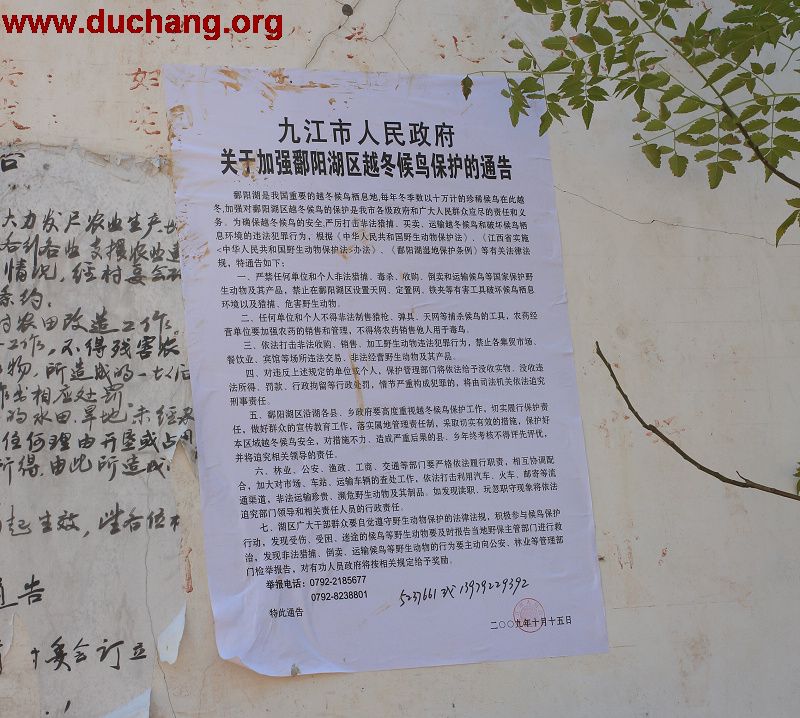 www.duchang.org
九江市人民政府
关于加强鄱阳湖区越冬候鸟保护的通告
鄱阳湖是我国重要的越冬候鸟栖息地,每年冬季数以十万计的珍稀候鸟在此越
冬,加强对鄱阳湖区越冬候鸟的保护是我市各级政府和广大人民群众应尽的责任和义
务。为确保越冬候鸟的安全,严厉打击非法猎捕、买卖、运输越冬候鸟和破坏候鸟栖
息环境的违法犯罪行为,根据《中华人民共和国野生动物保护法》、《江西省实施
<中华人民共和国野生动物保护法>办法》、《鄱阳湖湿地保护条例》等有关法律法
规,特通告如下:
一、严禁任何单位和个人非法猎捕、毒杀、收购、倒卖和运输候鸟等国家保护野
生动物及其产品,禁止在鄱阳湖区设置天网、定置网、铁夹等有害工具破坏候鸟栖息
环境以及猎捕、危害野生动物。
二、任何单位和个人不得非法制售猎枪、弹具、天网等捕杀候鸟的工具,农药经
营单位要加强农药的销售和管理,不得将农药销售他人用于毒鸟。
三、依法打击非法收购、销售、加工野生动物违法犯罪行为,禁止各集贸市场、
餐饮业、宾馆等场所违法交易、非法经营野生动物及其产品。
四、对违反上述规定的单位或个人,保护管理部门将依法给予没收实物、没收违
法所得、罚款、行政拘留等行政处罚,情节严重构成犯罪的,将由司法机关依法追究
刑事责任。
五、鄱阳湖区沿湖各县、乡政府要高度重视越冬候鸟保护工作,切实履行保护责
任,做好群众的宣传教育工作,落实属地管理责任制,采取切实有效的措施,保护好
本区域越冬候鸟安全,对措施不力、造成严重后果的县、乡年终考核不得评先评优,
并将追究相关领导的责任。
六、林业、公安、渔政、工商、交通等部门要严格依法履行职责,相互协调配
合,加大对市场、车站、运输车辆的查处工作,依法打击利用汽车、火车、邮寄等流
通渠道,非法运输珍贵、濒危野生动物及其制品。如发现渎职、玩忽职守现象将依法
追究部门领导和相关责任人员的行政责任。
七、湖区广大干部群众要自觉遵守野生动物保护的法律法规,积极参与候鸟保护
行动,发现受伤、受困、迷途的候鸟等野生动物要及时报告当地野保主管部门进行救
治,发现非法猎捕、倒卖、运输候鸟等野生动物的行为要主动向公安、林业等管理部
门检举报告,对有功人员政府将按相关规定给予奖励。
举报电话:0792-2185677
0792-8238801
5237661 或 13979229392
特此通告
二〇〇九年十月十五日
大力发展农业生产
情况,经村委会研
条约。
村农田改造工作。
工作,不得残害农
物,所造成的一切后
出相应处罚
的水田、旱地,未经
任何理由开垦或占用
所得,由此所造成
起生效,
通告
委会订立